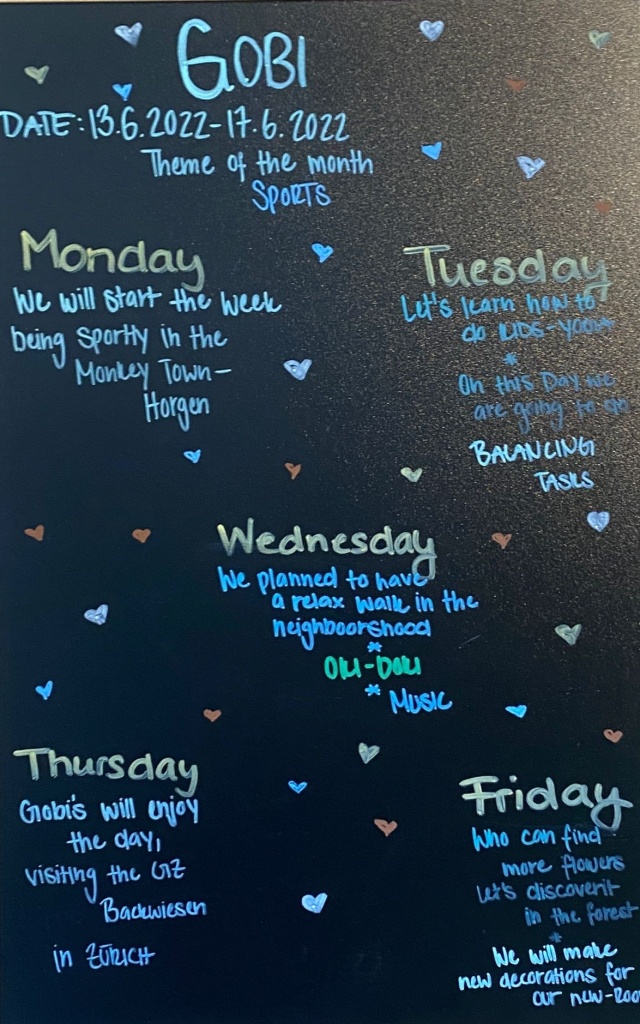 GOBI
DATE: 13.6.2022-17.6.2022
Theme of the month
SPORTS
Monday
We will start the week
being sportly in the
Monkey Town-
Horgen
Tuesday
Let's learn how to
do KIDS-YOGA
*
On this Day we
are going to do
BALANCING
TASKS
Wednesday
We planned to have
a relax walk in the
neighboorshood
*
OKI-DOKI
* MUSIC
Thursday
Gobi's will enjoy
the day,
visiting the GZ
Bachwiesen
in ZÜRICH
Friday
Who can find
more flowers
Let's discoverit
in the forest
*
We will make
new decorations for
our new-Roo